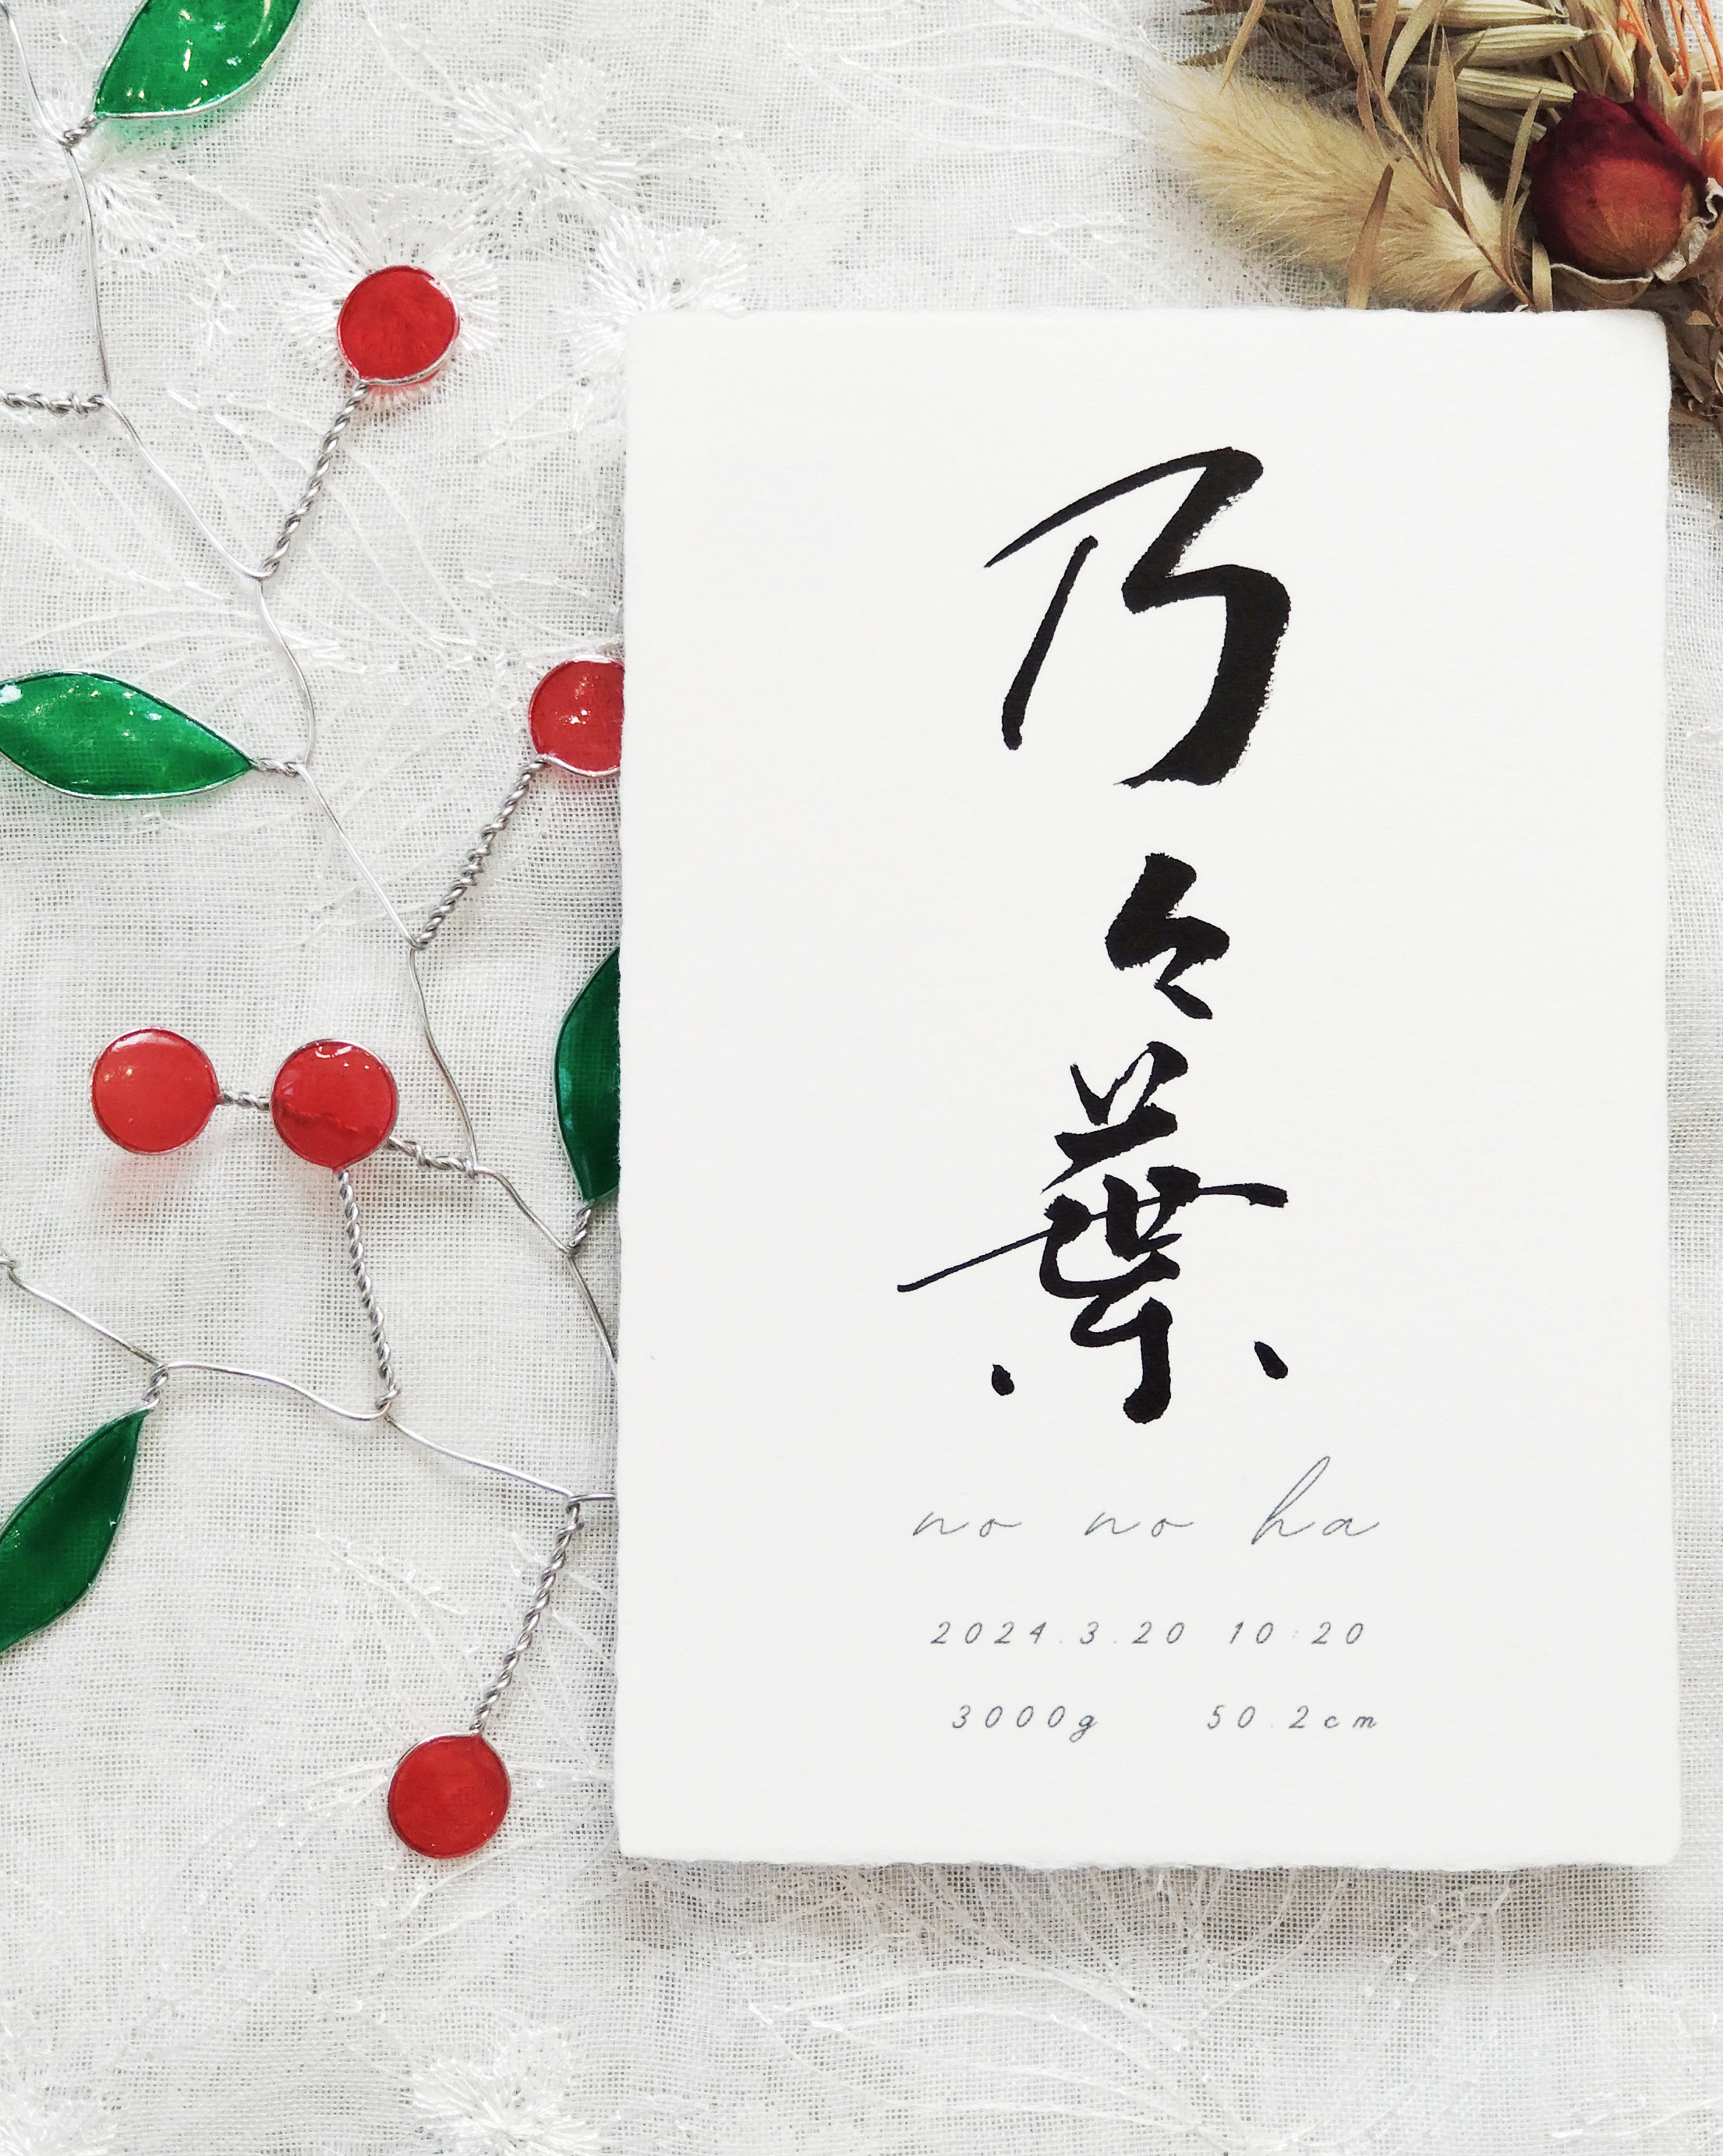 乃々葉
no no ha
2024.3.20 10:20
3000g 50.2cm